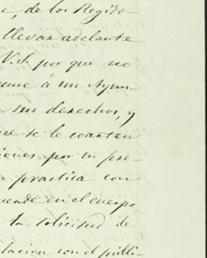 e, de los Regido-
llevar adelante
V. S. por que no
á un Ayun-
sus derechos, y
se le coarten
por un pre-
practica con
en el cuerpo
la solicitud de
con el públi-